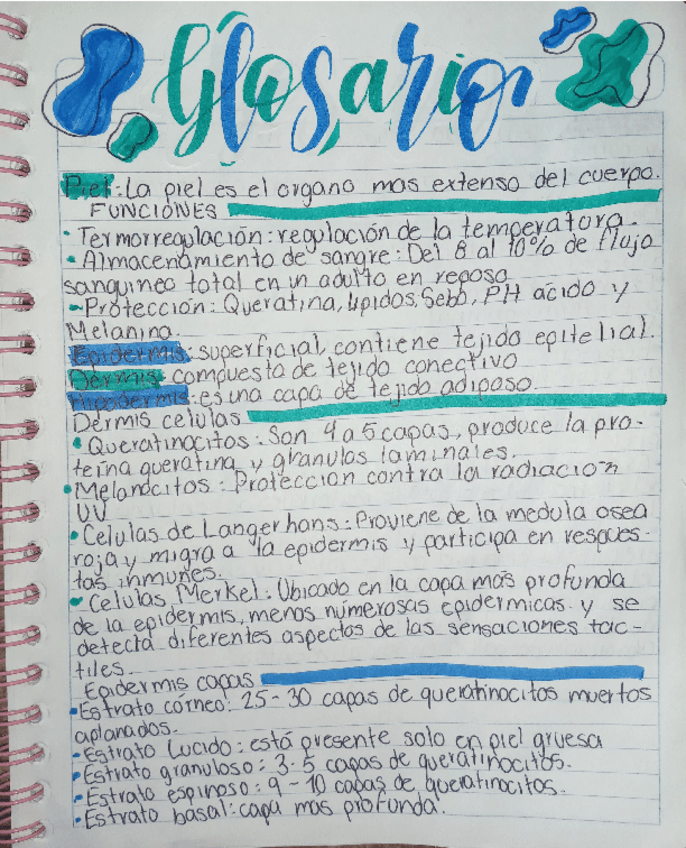 Glosario
Piel: La piel es el organo mas extenso del cuerpo.
FUNCIONES
• Termorregulación: regulación de la temperatura.
• Almacenamiento de sangre: Del 8 al 10% de flujo
sanguineo total en un adulto en reposo
• Protección: Queratina, lipidos, Sebo, PH acido y
Melanina.
Epidermis: superficial, contiene tejido epitelial.
Dermis: compuesta de tejido conectivo
Hipodermis: es una capa de tejido adiposo.
Dermis celulas
• Queratinocitos: Son 4 a 5 capas, produce la pro-
teina queratina y granulos laminales.
• Melanocitos: Protección contra la radiacion
UV
• Celulas de Langerhans: Proviene de la medula osea
roja y migra a la epidermis y participa en respues-
tas inmunes.
• Celulas Merkel: Ubicado en la capa mas profunda
de la epidermis, menos numerosas epidermicas y se
detecta diferentes aspectos de las sensaciones tac-
tiles.
Epidermis capas
• Estrato córneo: 25-30 capas de queratinocitos muertos
aplanados.
• Estrato Lucido: está presente solo en piel gruesa
• Estrato granuloso: 3-5 capas de queratinocitos.
• Estrato espinoso: 9-10 capas de queratinocitos.
• Estrato basal: capa mas profunda.